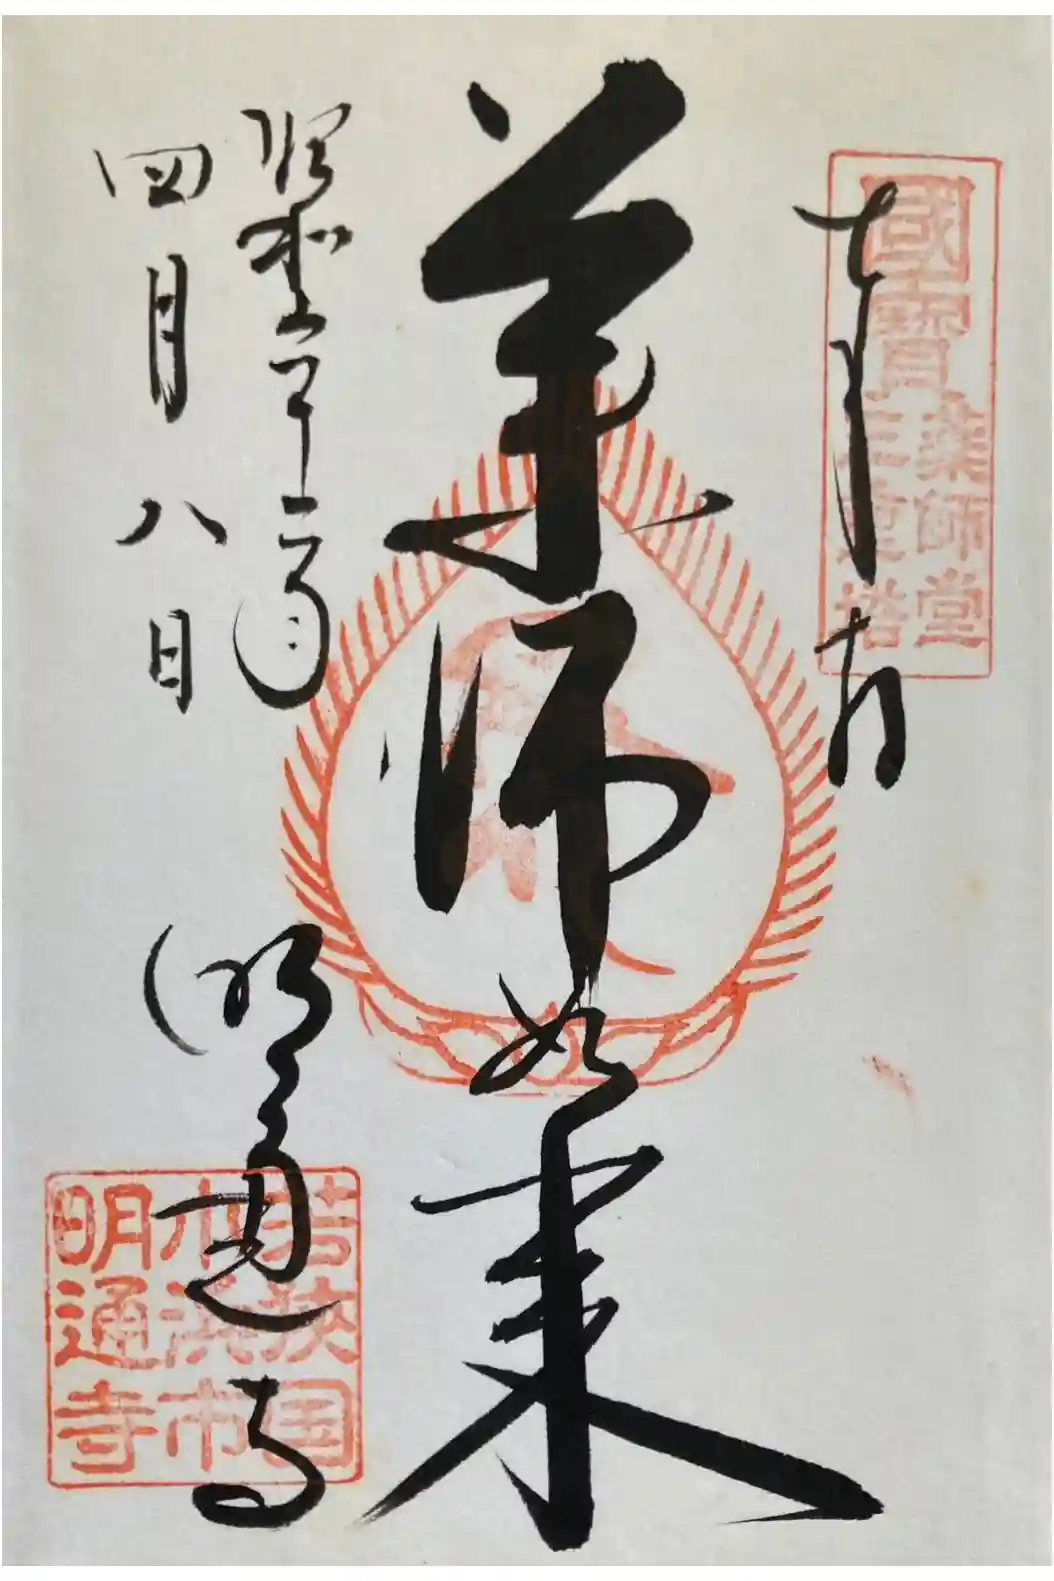 奉拝
國寶
薬師堂
三重塔
薬師如来
昭和五十二年
四月八日
明通寺
若狭国
小浜市
明通寺